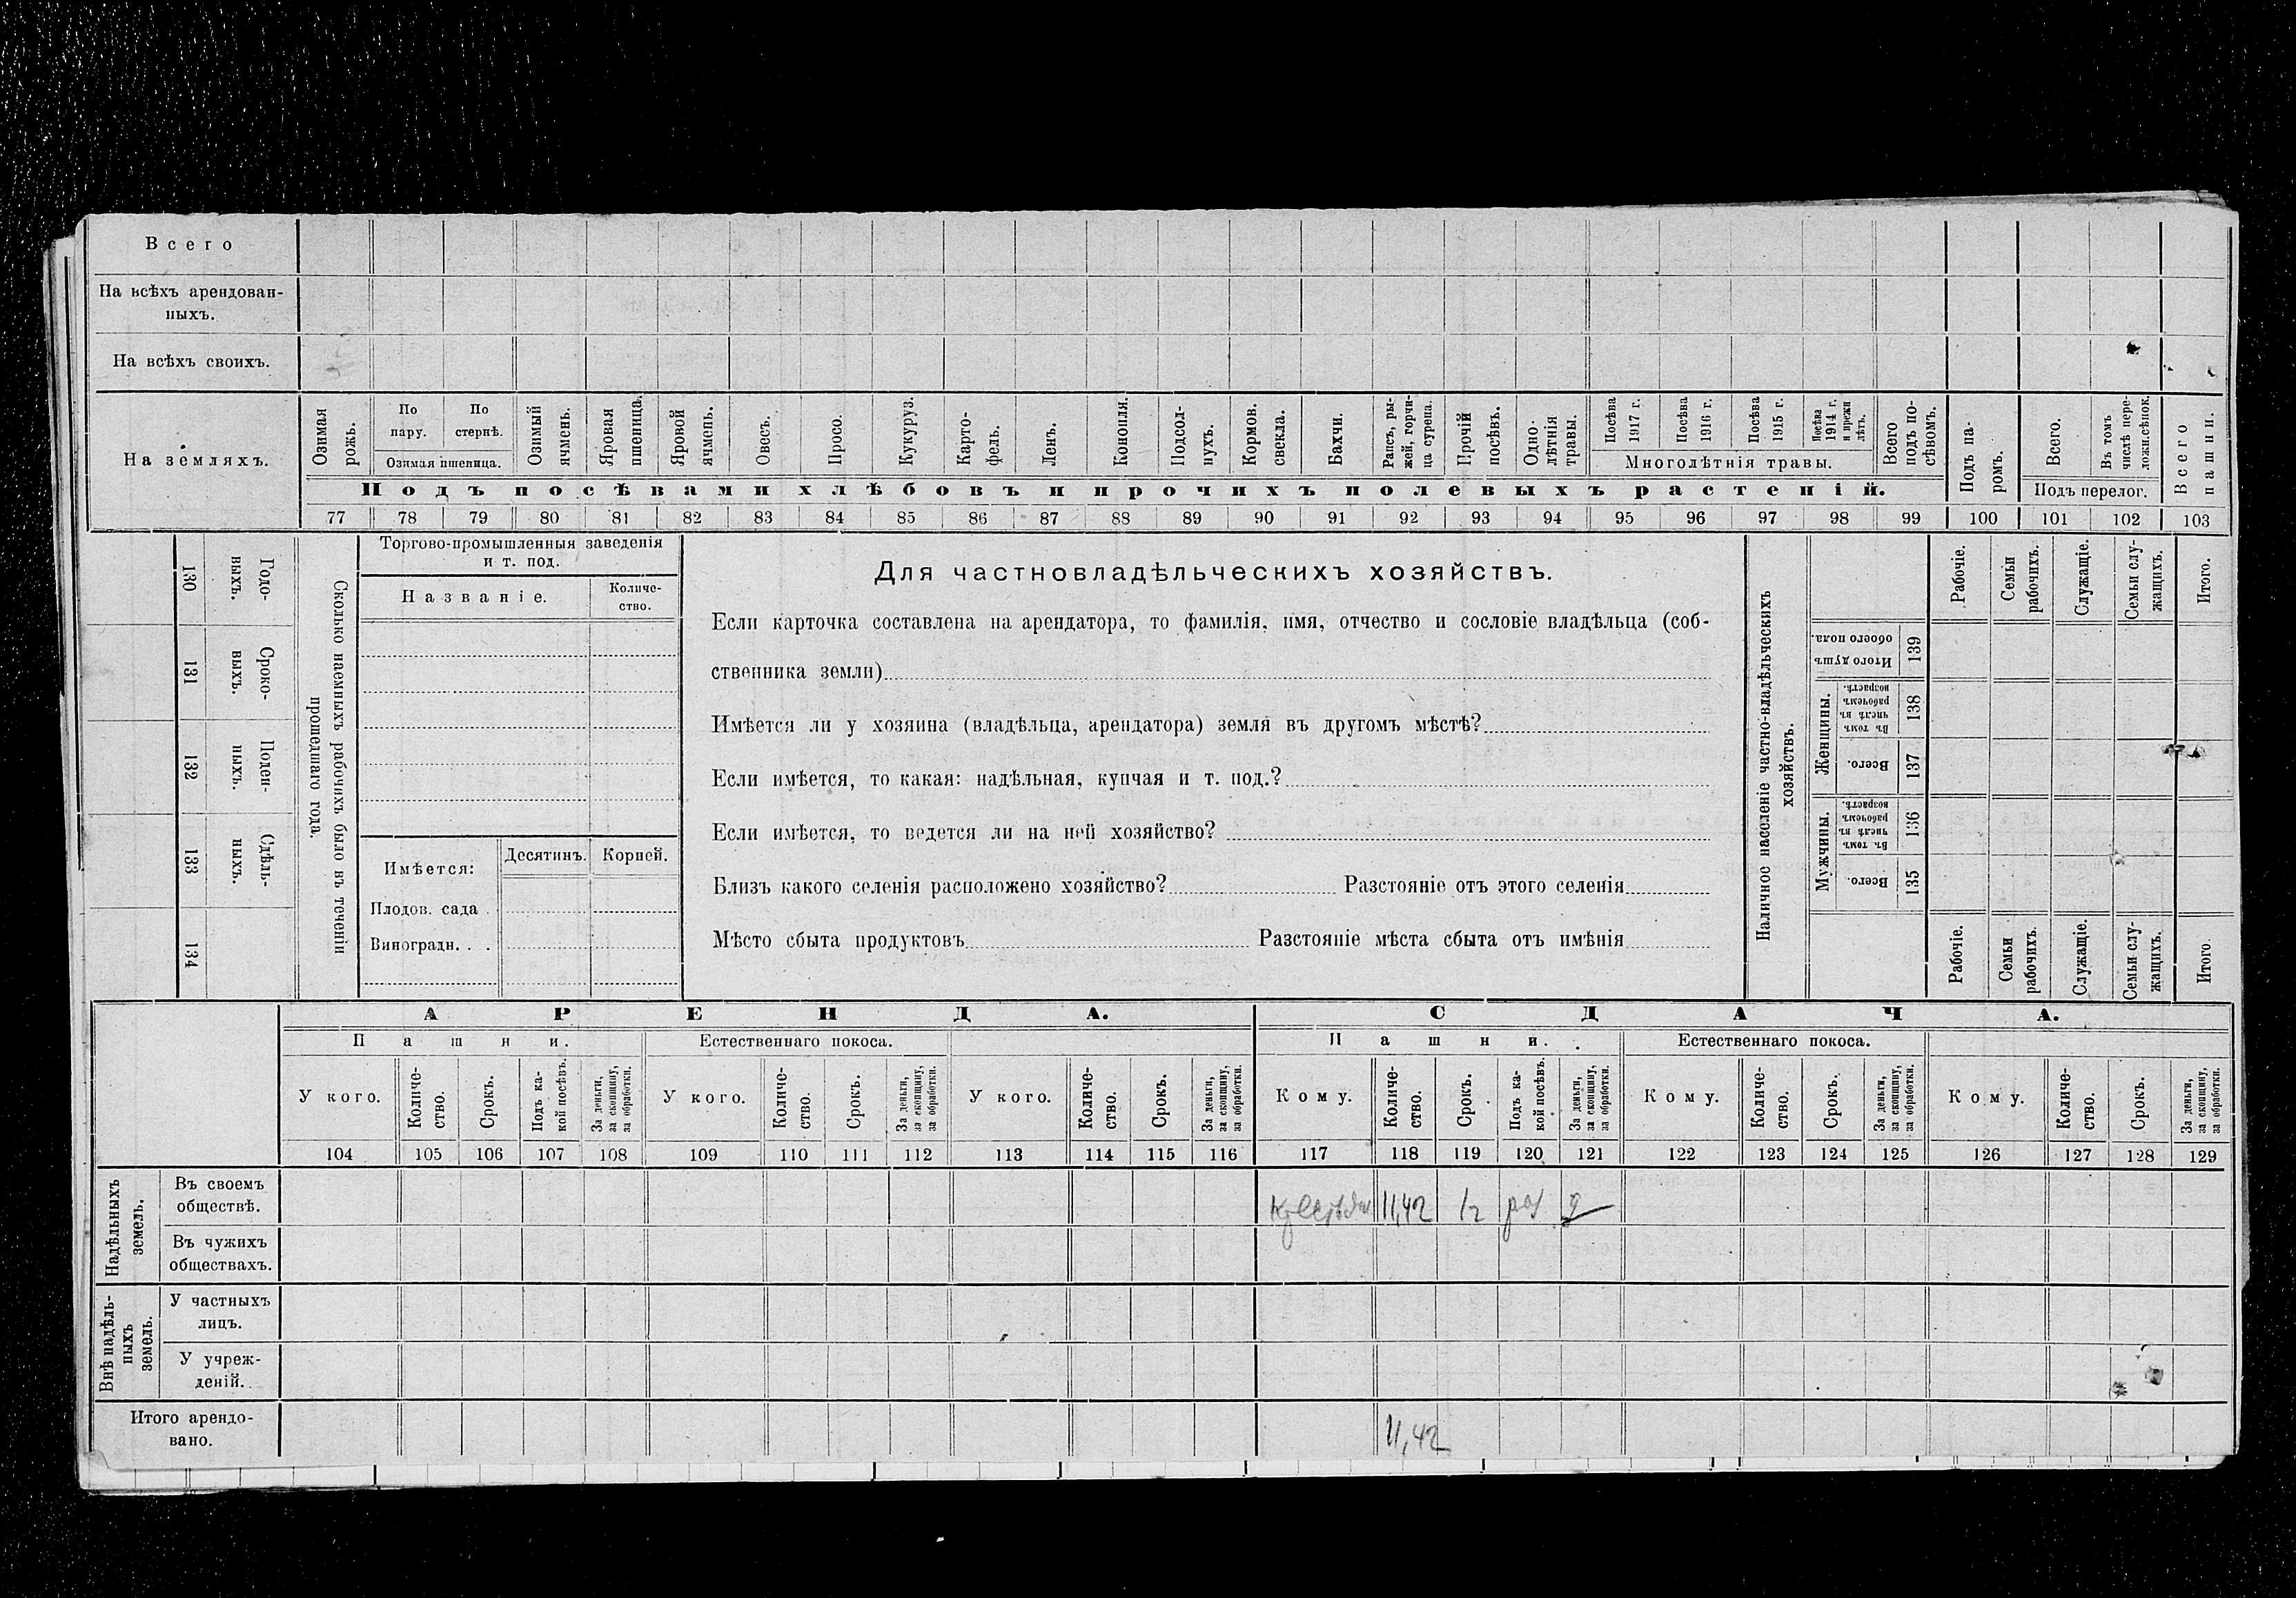 Всего
На всѣхъ арендован-
ныхъ.
На всѣхъ своихъ.
На земляхъ.
Озимая рожь.
По пару.
По стернѣ.
Озимая пшеница.
Озимый ячмень.
Яровая пшеница.
Яровой ячмень.
Овесъ.
Просо.
Кукуруз.
Карто-
фель.
Ленъ.
Конопля.
Подсол-
нухъ.
Кормов.
свекла.
Бахчи.
Рапсъ, ры-
жей, горчи-
ца сурепа.
Прочій
посѣвъ.
Одно-
лѣтнія
травы.
Посѣва
1917 г.
Посѣва
1916 г.
Посѣва
1915 г.
Посѣва
1914 г.
и прежн
лѣтъ.
Многолѣтнія травы.
Всего
подъ по-
сѣвомъ.
Подъ посѣвами хлѣбовъ и прочихъ полевыхъ растеній.
Подъ па-
ромъ.
Всего.
Въ томъ
числѣ пере-
ложн.сѣнок.
Подъ перелог.
Всего
пашни.
77 78 79 80 81 82 83 84 85 86 87 88 89 90 91 92 93 94 95 96 97 98 99 100 101 102 103
Годо-
выхъ.
130
Сроко-
выхъ.
131
Поден-
ныхъ.
132
Сдѣль-
ныхъ.
133
134
Сколько наемныхъ рабочихъ было въ теченіи
прошедшаго года.
Торгово-промышленныя заведенія
и т. под.
Названіе.
Количе-
ство.
Имѣется:
Десятинъ.
Корней.
Плодов. сада
Виноградн. . .
Для частновладѣльческихъ хозяйствъ.
Если карточка составлена на арендатора, то фамилія, имя, отчество и сословіе владѣльца (соб-
ственника земли)
Имѣется ли у хозяина (владѣльца, арендатора) земля въ другомъ мѣстѣ?
Если имѣется, то какая: надѣльная, купчая и т. под.?
Если имѣется, то ведется ли на ней хозяйство?
Близъ какого селенія расположено хозяйство? Разстояніе отъ этого селенія
Мѣсто сбыта продуктовъ Разстояніе мѣста сбыта отъ имѣнія
Наличное населеніе частно-владѣльческихъ
хозяйствъ.
Рабочіе.
Семьи
рабочихъ.
Служащіе.
Семьи слу-
жащихъ.
Итого.
Итого душъ
обоего пола.
139
Женщины.
Въ томъ
числѣ въ
рабочемъ
возрастѣ.
138
Всего.
137
Мужчины.
Въ томъ
числѣ въ
рабочемъ
возрастѣ.
136
Всего.
135
Рабочіе.
Семьи
рабочихъ.
Служащіе.
Семьи слу-
жащихъ.
Итого
АРЕНДА.
СДАЧА.
Пашни.
Естественнаго покоса.
Пашни.
Естественнаго покоса.
У кого.
Количе-
ство.
Срокъ.
Подъ ка-
кой посѣвъ.
За деньги,
за скопщину,
за обработки.
У кого.
Количе-
ство.
Срокъ.
За деньги,
за скопщину,
за обработки.
У кого.
Количе-
ство.
Срокъ.
За деньги,
за скопщину,
за обработки.
Кому.
Количе-
ство.
Срокъ.
Подъ ка-
кой посѣвъ.
За деньги,
за скопщину,
за обработки.
Кому.
Количе-
ство.
Срокъ.
За деньги,
за скопщину,
за обработки.
Кому.
Количе-
ство.
Срокъ.
За деньги,
за скопщину,
за обработки.
104 105 106 107 108 109 110 111 112 113 114 115 116 117 118 119 120 121 122 123 124 125 126 127 128 129
Надѣльныхъ
земель.
Въ своемъ
обществѣ.
11,42
Въ чужихъ
обществахъ.
Внѣ надѣль-
ныхъ
земель.
У частныхъ
лицъ.
У учреж-
деній.
Итого арендо-
вано.
11,42